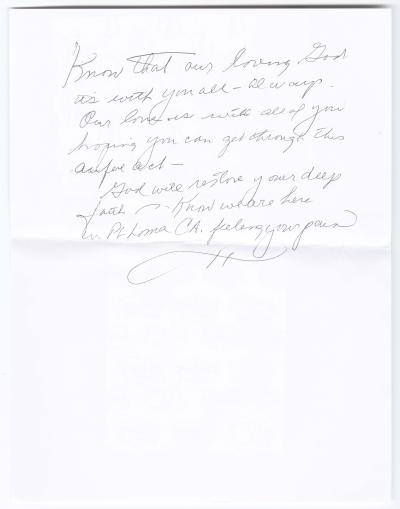 Know that our loving God
is with you all - Always.
Our love is with all of you
hoping you can get through this
awful act -
God will restore your deep
faith - Know we are here
in Pt Loma CA. feeling your pain